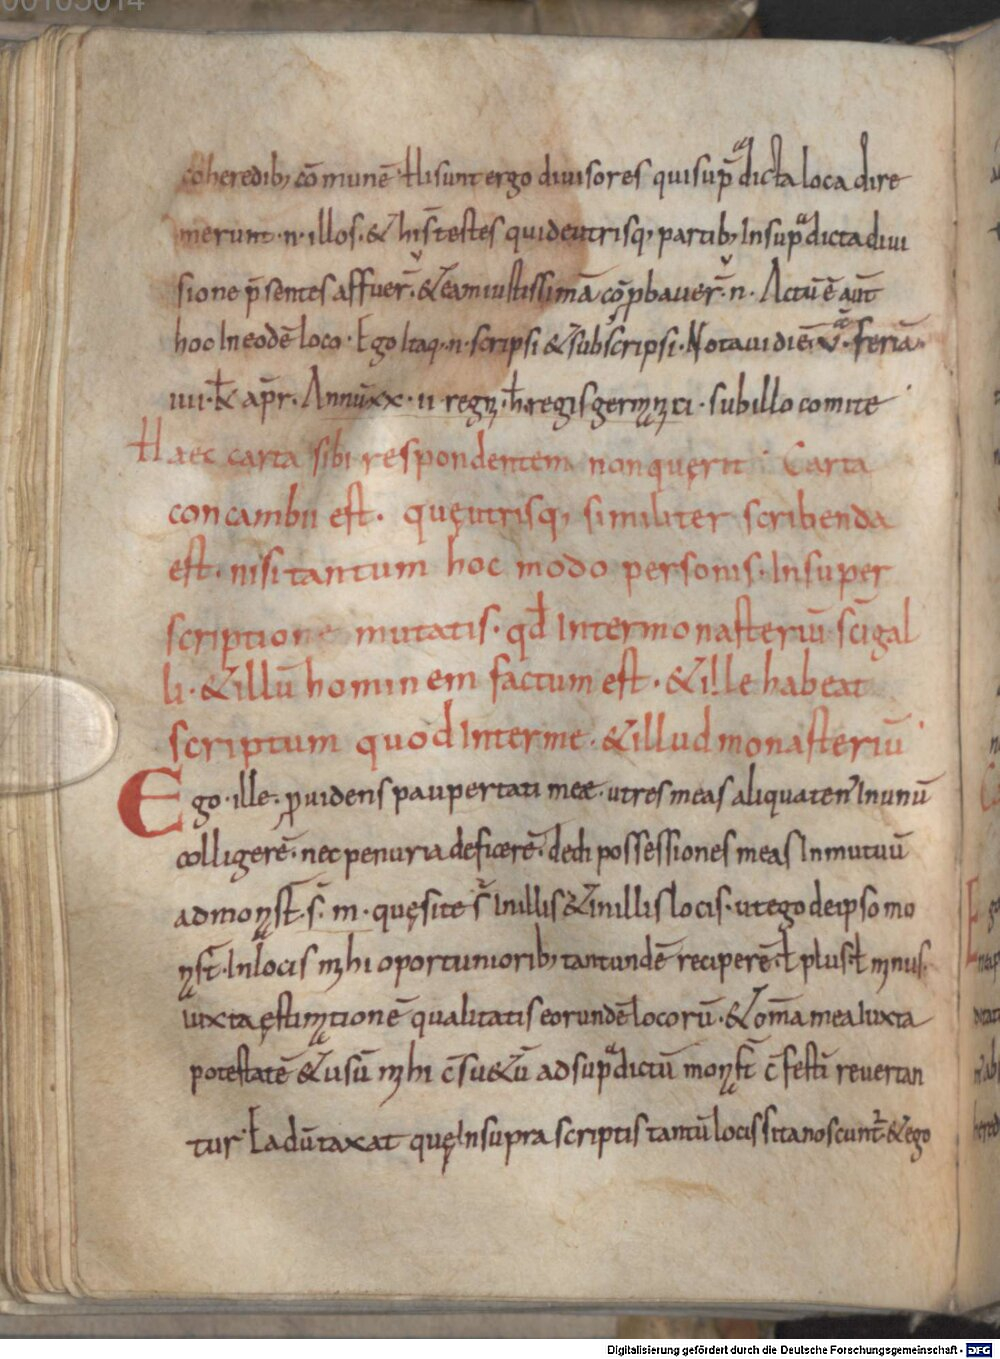 00105014
coheredib; cōmunē Hi sunt ergo diuisores qui sup̄dicta loca dire
merunt · n · illos · & hi s̄ testes qui deutrisq; partib; In supᵃdicta diui
sione p̄sentes affuer̄ · & eam iustissimā cōp̱bauer̄ · n · Actū ē aut̄
hoc In eodē loco · Ego Itaq; · n · scripsi & subscripsi · Notaui diē · v · feriā ·
iiii · k̄ ap̄r · Annū xx · ii regn̄ · h · regis germ · sub illo comite
Haec carta sibi respondentem non querit · Carta
concambii est · quę utrisq; similiter scribenda
est · nisi tantum hoc modo personis · In super
scriptione mutatis · qđ Inter monasteriū sc̄i gal
li · & illū hominem factum est · & ille habeat
scriptum quod Inter me · & illud monasteriū
Ego · ille · p̱uidens paupertati meę · ut res meas aliquaten' In unū
colligerē · nec penuria deficerē · dedi possessiones meas In mutuū
ad monst̄ · s̄ · m · quę site s̄ In illis & in illis locis · ut ego de ipso mo
nst̄ · In locis mihi oportuniorib; tantundē reciperē · ł plus · ł minus ·
iuxta ęstimationē qualitatis eorundē locorū · & om̄a mea Iuxta
potestatē & usū mihi c̄suetū ad supᵃdictū monst̄ c̄festī reuertan
tur · Ea dūtaxat quę In supra scriptis tantū locis sita noscunt̄ · & ego
Digitalisierung gefördert durch die Deutsche Forschungsgemeinschaft - DFG